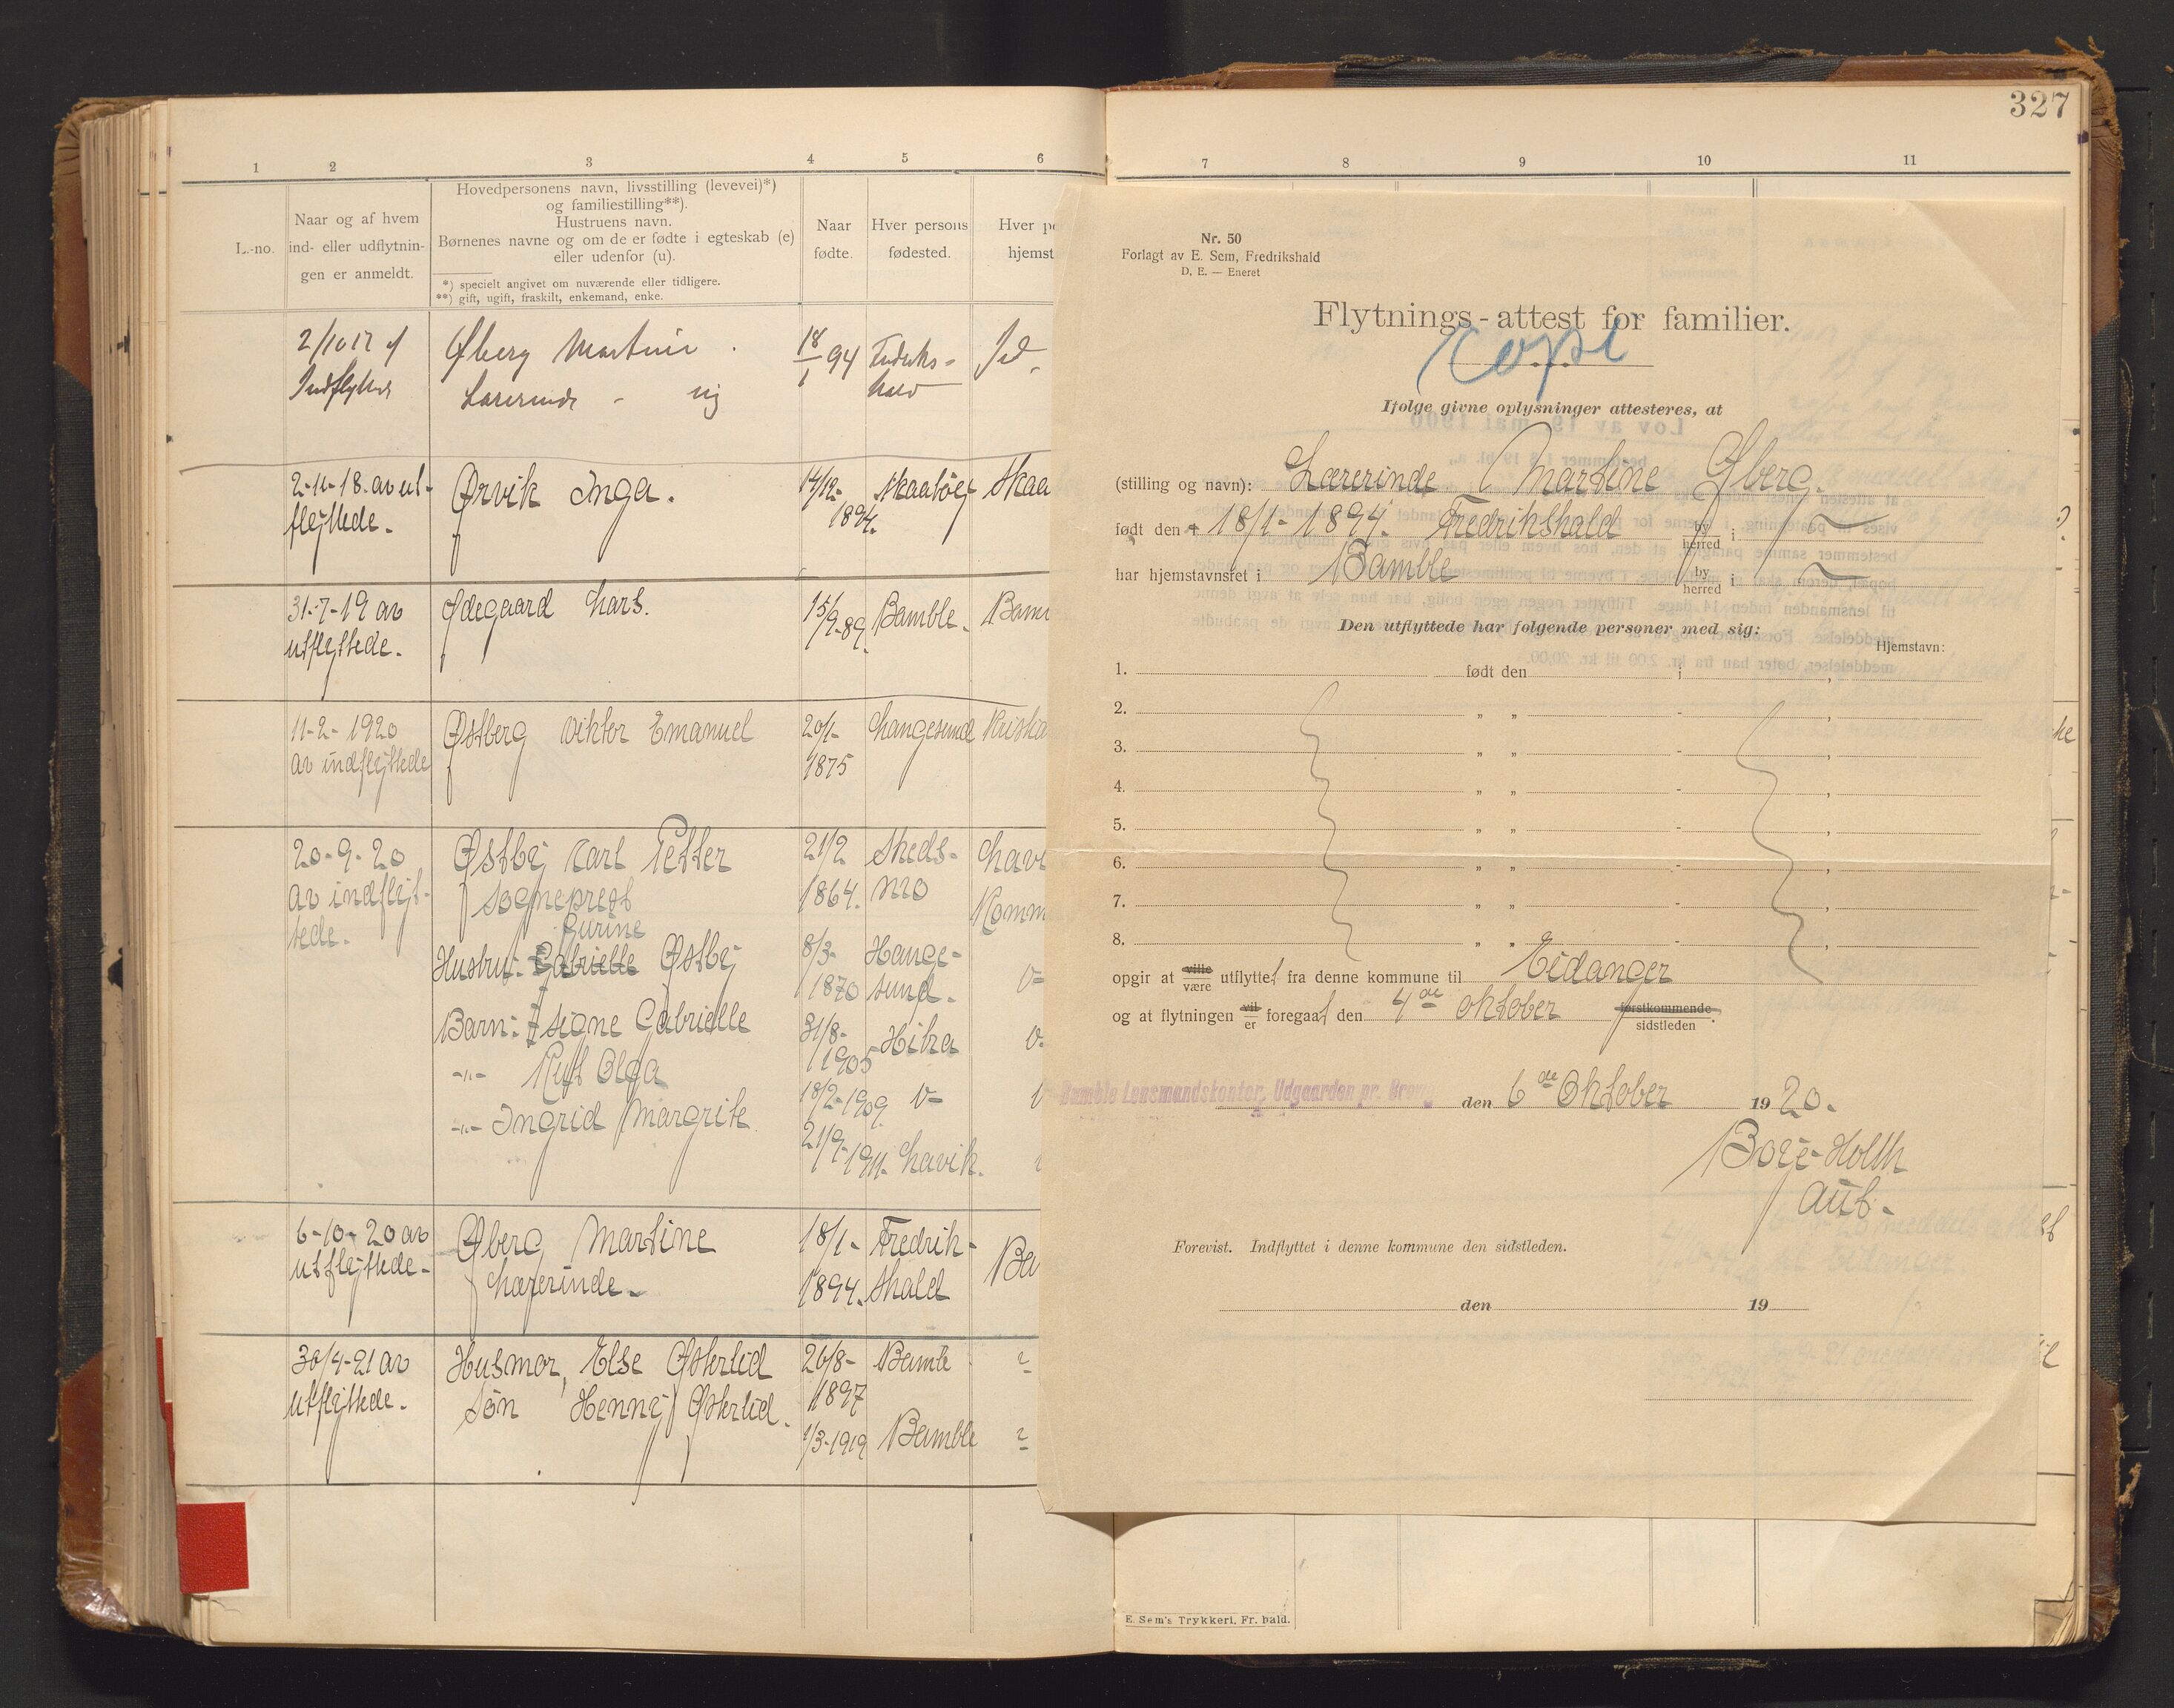 1 2 3 4 5 6
L.-no.
Naar og af hvem
ind- eller udflytnin-
gen er anmeldt.
Hovedpersonens navn, livsstilling (levevei)*)
og familiestilling**).
Hustruens navn.
Børnenes navne og om de er fødte i egteskab (e)
eller udenfor (u).
*) specielt angivet om nuværende eller tidligere.
**) gift, ugift, fraskilt, enkemand, enke.
Naar
fødte.
Hver persons
fødested.
Hver pe
hjemst
2/10 17 af Øberg Martine . 18/1 94 Fredriks- Id.
Indflytted Lærerinde - ug hald
2-11-18. av ut- Ørvik Inga. 14/12- Skaatöy Skaa
flyttede. 1894.
31-7-19 av Ødegaard Lars. 15/9-89. Bamble. Bam
utflyttede.
11-2-1920 Østberg Viktor Emanuel 20/1- Langesund Krista
av indflyttede 1875
20-9-20 Østby Carl Petter 21/2 Skeds- Lavi
av indflyt- Sogneprest 1864. mo Komm
tede. Gurine
Hustru: Gabrielle Østby 8/3- Hauge-
1870 sund.
Barn: Signe Gabrielle 31/8- Hitra
1905
-"- Rut Olga 18/2-1909
-"- Ingrid Margrite 21/9-1911. Lavik.
6-10-20 av Øberg Martine 18/1- Fredrik- Ba
utflyttede- Lærerinde. 1894. shald
30/4-21 av Husmor, Else Østerlid 26/8- Bamble ?
utflyttede. Søn Henny Østerlid. 1897
1/3-1919 Bamble ?
327
7 8 9 10 11
Nr. 50
Forlagt av E. Sem, Fredrikshald
D. E. — Eneret
Flytnings-attest for familier.
Copi
Ifølge givne oplysninger attesteres, at
(stilling og navn): Lærerinde Martine Øberg.
født den 18/1-1894. Fredrikshald by herred i
har hjemstavnsret i Bamble by herred i
Den utflyttede har følgende personer med sig:
Hjemstavn:
1. født den i ,
2. „ „ - ,
3. „ „ - ,
4. „ „ - ,
5. „ „ - ,
6. „ „ - ,
7. „ „ - ,
8. „ „ - ,
opgir at ville være utflyttet fra denne kommune til Eidanger
og at flytningen vil er foregaat den 4de oktober førstkommende sidstleden.
Bamble Lensmandskontor, Udgaarden pr. Brevik den 6de Oktober 1920.
Borje-Holth
aut.
Forevist. Indflyttet i denne kommune den sidstleden.
den 19
E. Sem's Trykkeri, Fr. hald.